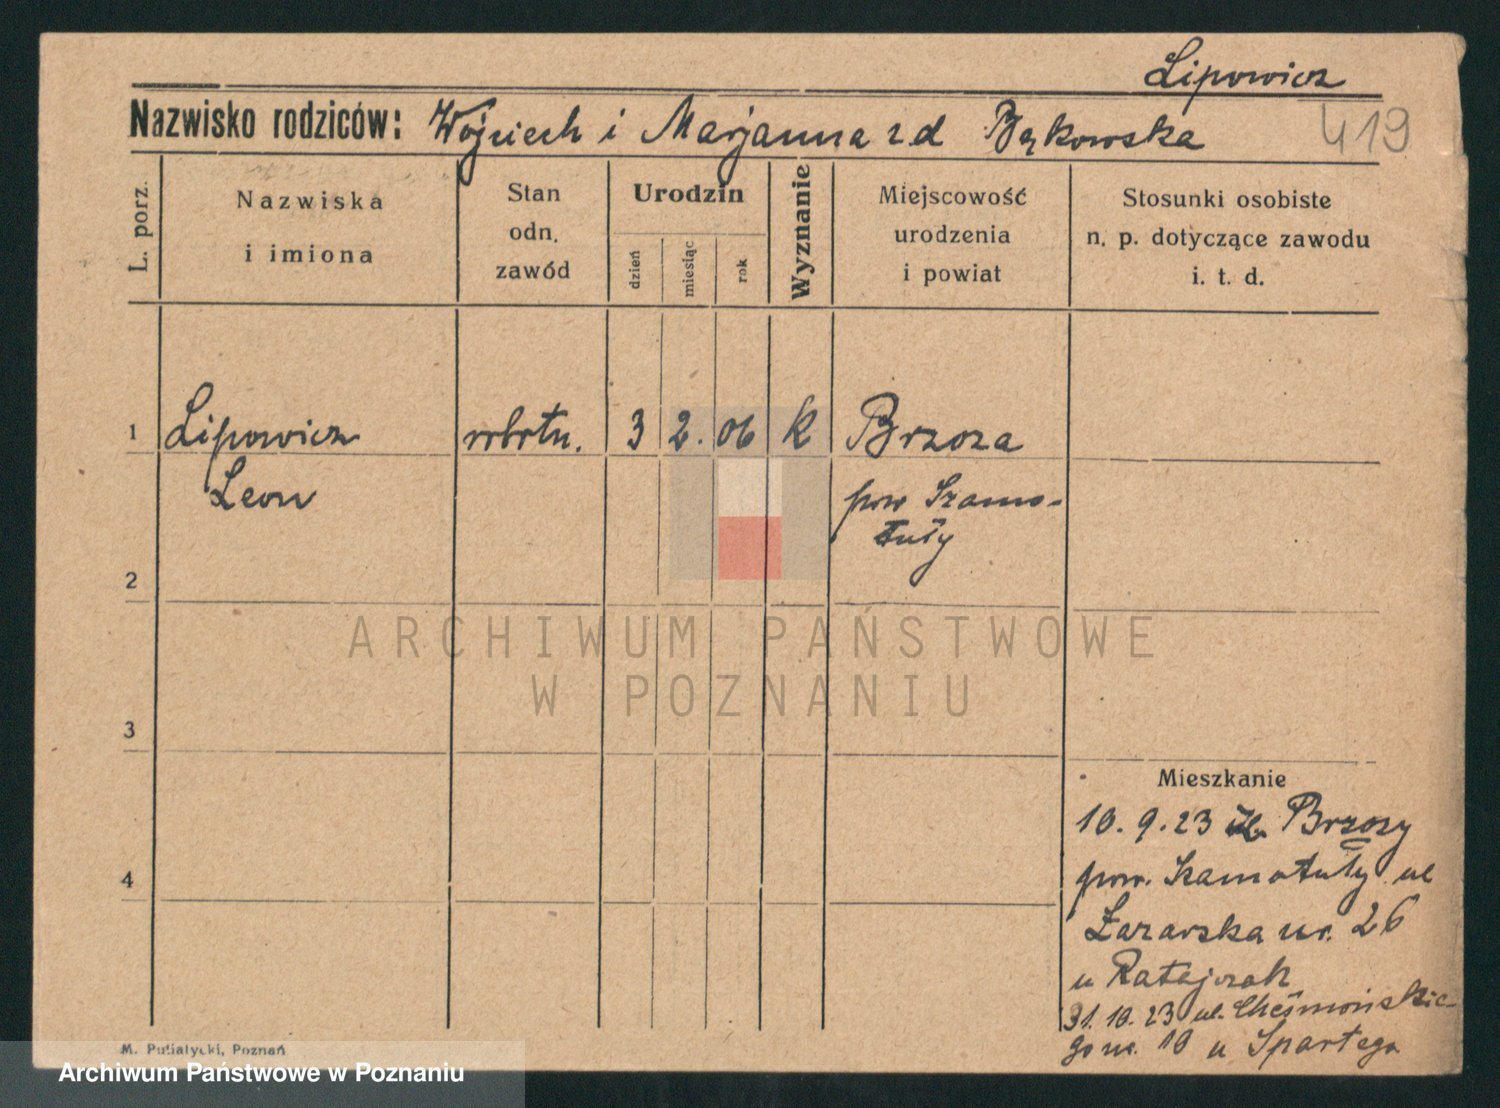 Lipowicz
Nazwisko rodziców: Wojciech i Marjanna z d Bąkowska
419
L. porz.
Nazwiska
i imiona
Stan
odn.
zawód
Urodzin
dzień
miesiąc
rok
Wyznanie
Miejscowość
urodzenia
i powiat
Stosunki osobiste
n. p. dotyczące zawodu
i. t. d.
1 Lipowicz 3 2. 06 k Brzoza
Leon pow Szamo-
tuły
2
3
4
ARCHIWUM PAŃSTWOWE
W POZNANIU
Mieszkanie
10. 9. 23 Brzozy
pow. Szamotuły ul
Łazarska nr. 26
u Ratajczak
31. 10. 23 ul. Chełmońskie-
go nr. 10 u Spartego
M. Putiatycki, Poznań
Archiwum Państwowe w Poznaniu